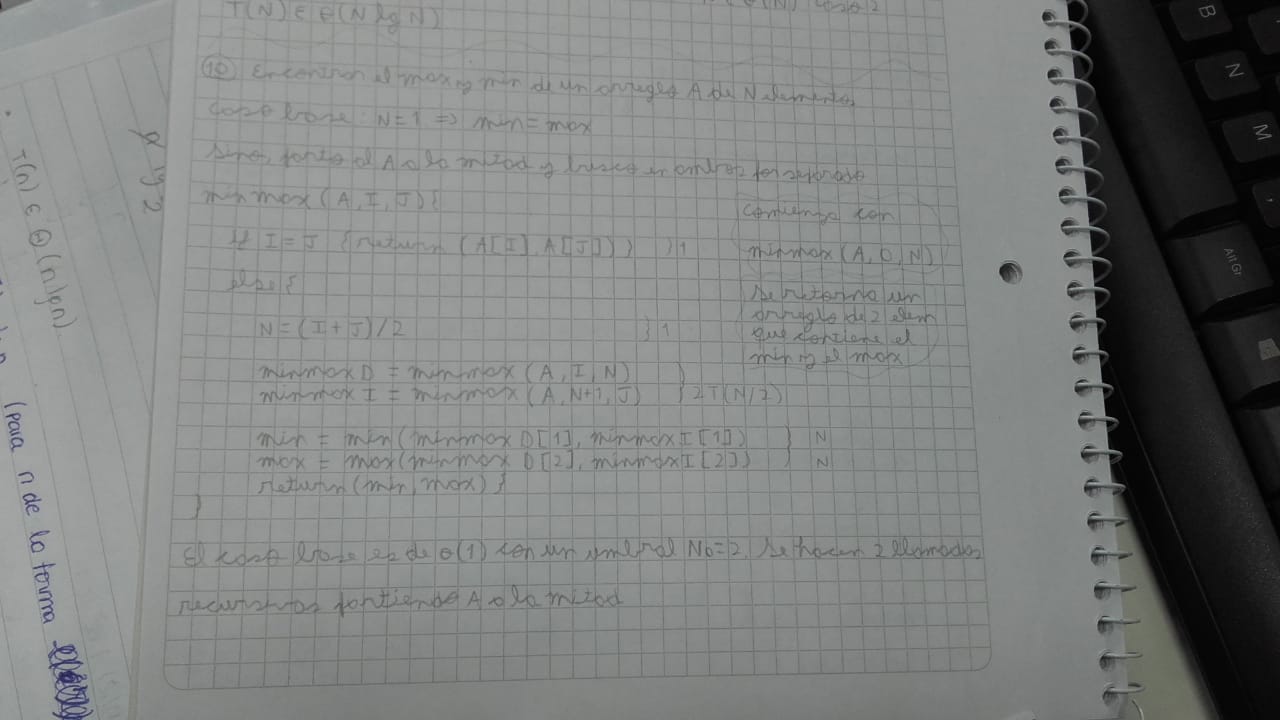 T(N) ∈ θ(N lg N)
θ(N) caso 2
10 Encontrar el max y min de un arreglo A de N elementos
Caso base N=1 => min = max
Sino, parto al A a la mitad y busco en ambos por separado
minmax (A, I, J) {
if I = J {return (A[I], A[J]) } } 1
else {
N = (I + J) / 2 } 1
minmax D = minmax (A, I, N)
minmax I = minmax (A, N+1, J) } 2T(N/2)
min = min (minmax D[1], minmax I[1]) } N
max = max (minmax D[2], minmax I[2]) } N
return (min, max) }
}
comienza con
minmax (A, 0, N)
se retorna un
arreglo de 2 elem
que contiene el
min y el max
El caso base es de θ(1) con un umbral N0=2. Se hacen 2 llamadas
recursivas partiendo A a la mitad
T(n) ∈ Θ(n lg n)
lg 2
(para n de la forma
B
N
M
Alt Gr